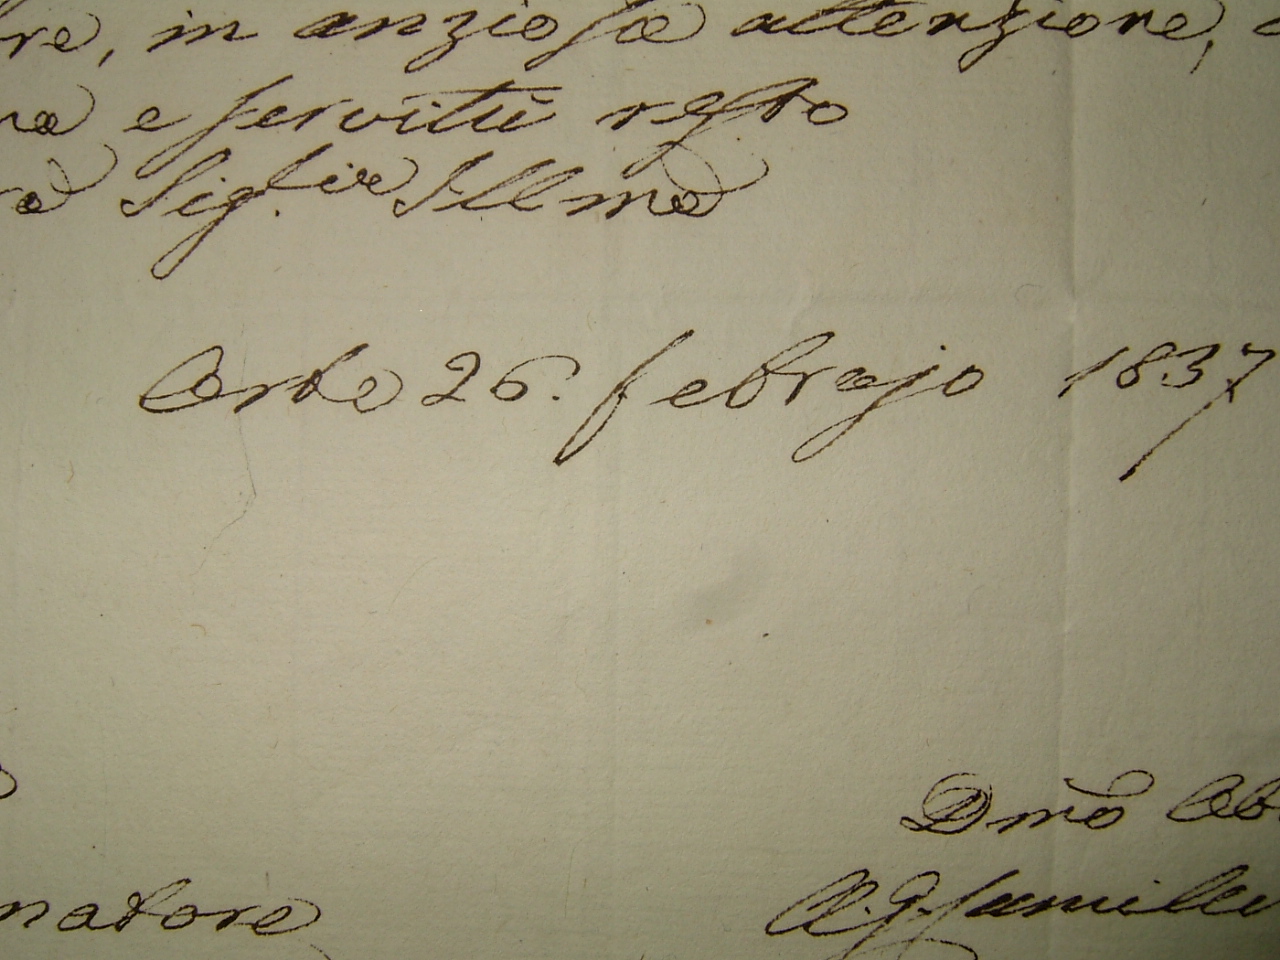 re, in anziosa attenzione,
na e servitù resto
ra Sig.rie Illma
Orte 26. febrajo 1837
Dmo Ob
natore